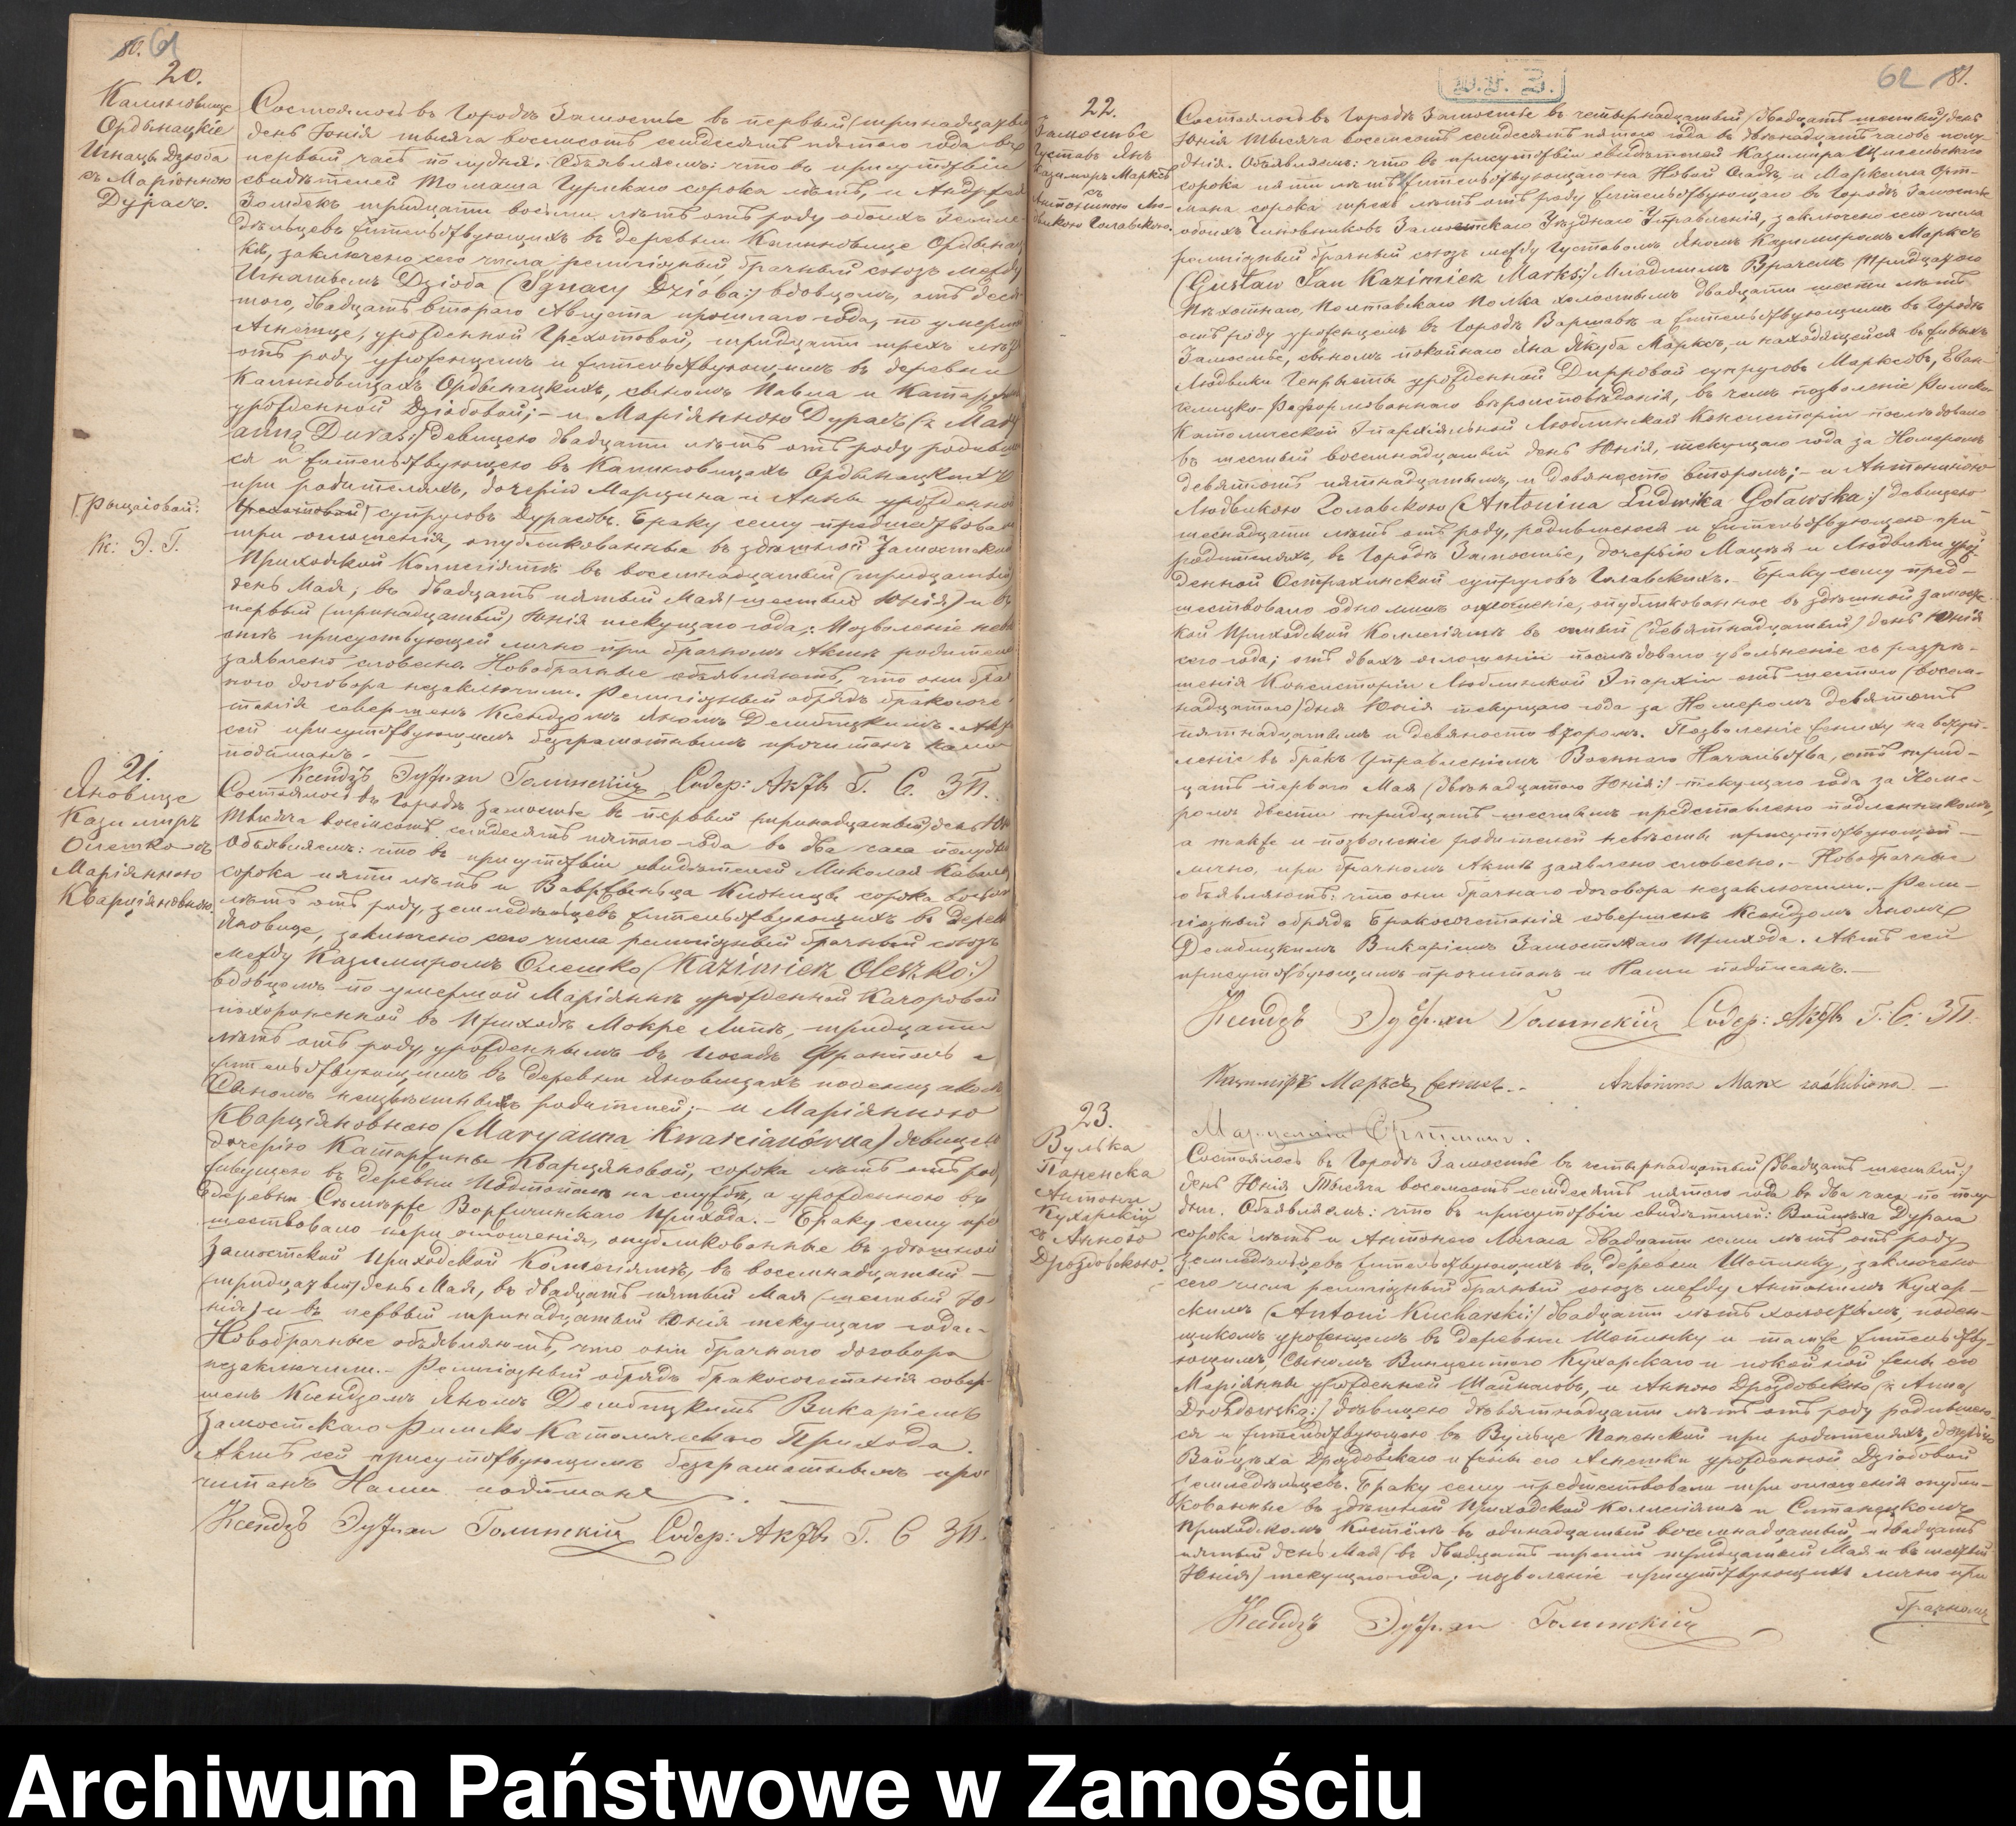 80. 61
20.
Калиновице
Ордынацкіе
Игнацъ Дзюба
съ Маріянною
Дурасъ.
Состоялось въ Городѣ Замостьѣ въ первый (тринадцатый)
день Юнія тысяча восемсотъ семдесятъ пятого года въ
первый часъ по полудни. Объявляемъ: что въ присутствіи
свидѣтелей Томаша Гурскаго сорока лѣтъ, и Андрея
тридцати восьми лѣтъ отъ роду обоихъ земле-
дѣльцевъ жительствующихъ въ деревни Калиновице Ордынац-
кѣ, заключенъ сего числа религіозный брачный союзъ между
Игнатіемъ Дзюба (Ignacy Dzioba:) вдовцомъ, отъ деся-
того, двадцать второго Августа прошлаго года, по умершей
Агнешце, урожденной Греготовой, тридцати трехъ лѣтъ
отъ роду урожденцемъ и жительствующимъ въ деревни
Калиновицахъ Ордынацкихъ, сыномъ Павла и Катаржины
урожденной Дзюбовой; – и Маріянною Дурасъ (: Mary-
anną Duras:) девицею двадцати лѣтъ отъ роду родившею-
ся и жительствующею въ Калиновицахъ Ордынацкихъ
при родителяхъ, дочерію Марцина и Анны урожденной
супруговъ Дурасовъ. Браку сему предшествовали
[Рыцаговой:
Кс: Э. Г.
три оглашенія, опубликованные въ здѣшной Замостской
Приходской Коллегіятѣ въ восемнадцатый (тридцатый)
день Мая, въ двадцать пятый Мая (шестый Юнія) и въ
первый (тринадцатый) Юнія текущаго года; Позволеніе
присуствующей лично при брачномъ Актѣ родителей
заявлено словесно. Новобрачные объявляютъ, что они брач-
ного договора незаключили. Религіозный обрядъ бракосоче-
танія совершенъ Ксендзомъ Яномъ Дембицкимъ. Актъ
сей присутствующимъ безграмотнымъ прочитанъ Нами
подписанъ. –
Ксендзъ Голинскій Содер: Актъ Г. С. ЗП.
21.
Яновице
Казимиръ
Олешко съ
Маріянною
Кварціяновною.
Состоялось въ Городѣ Замостьѣ въ первый (тринадцатый) день Юнія
тысяча восемсотъ семдесятъ пятого года въ два часа полудни
Объявляемъ: что въ присутствіи свидѣтелей Миколая
сорока пяти лѣтъ и Вавржеyньца сорока восьми
лѣтъ отъ роду, земледѣльцевъ жительствующихъ въ деревни
Яновице, заключенo сего числа религіозный брачный союзъ
между Казимиромъ Олешко (Kazimierz Oleszko:)
вдовцомъ по умершой Маріяннѣ урожденной Качоровой
похороненной въ Приходѣ Мокре Липе, тридцати
лѣтъ отъ роду урожденнымъ въ Посадѣ Франполь а
жительствующимъ въ деревни Яновицахъ поденщикомъ
Сыномъ неизвѣстныхъ родителей; – и Маріянною
Кварціяновною (Maryanna Kwarcianówna) девицею
дочерію Катаржины Кварціяновой, сорока лѣтъ отъ роду
живущею въ деревни на службѣ, а урожденною въ
деревни Прихода. – Браку сему пред-
шествовало три оглашенія, опубликованные въ здѣшной
Замостской Приходской Коллегіятѣ, въ восемнадцатый –
(тридцатый) день Мая, въ двадцать пятый Мая (шестый Ю-
нія) и въ первый тринадцатый Юнія текущаго года. –
Новобрачные объявляютъ, что они брачнаго договора
незаключили. – Религіозный обрядъ бракосочетанія совер-
шенъ Ксендзомъ Яномъ Дембицкимъ Викаріемъ
Замостскаго Римско Католическаго Прихода.
Актъ сей присутствующимъ безграматнымъ про-
читанъ Нами подписанъ
Ксендзъ Голинскій Содер: Актъ Г. С ЗП.
62 81.
22.
Замостье
Густавъ Янъ
Казимиръ Марксъ
съ
Антониною Лю-
двикою Голавскою.
Состоялось въ Городѣ Замостьѣ въ четырнадцатый (двадцать шестый) день
Юнія тысяча восемсотъ семдесятъ пятого года въ двѣнадцать часовъ полу-
дня. Объявляемъ: что въ присутствіи свидѣтелей Казимира
сорока пяти лѣтъ жительствующаго на Новой Осадѣ и Маркелла Орт-
мана сорока трехъ лѣтъ отъ роду жительствующаго въ Городѣ Замостьѣ
обоихъ Чиновниковъ Замостскаго Уѣзднаго Управленія, заключено сего числа
религіозный брачный союзъ между Густавомъ Яномъ Казимиромъ Марксъ
(Gustaw Jan Kazimierz Marks:) Младшимъ Врачемъ тридцатого
Пѣхотнаго Полтавскаго Полка холостымъ двадцати шести лѣтъ
отъ роду урожденцемъ въ Городѣ Варшавѣ а жительствующимъ въ Городѣ
Замостье, сыномъ покойнаго Яна Якуба Марксъ, и находящейся въ живыхъ
Людвики Генріеты урожденной Дирровой супруговъ Марксовъ, Еван-
гелицко-Реформованнаго вѣроисповѣданія, въ чемъ позволеніе Римско-
Католической Эпархіяльной Люблинской Консисторіи послѣдовало
въ шестый восемнадцатый день Юнія, текущаго года за Номеромъ
девятсотъ пятнадцатымъ, и девяносто вторымъ; – и Антониною
Людвикою Голавскою (Antonina Ludwika Goławska:) девицею
шеснадцати лѣтъ отъ роду, родившеюся и жительствующею при
родителяхъ, въ Городѣ Замостье, дочерію Мацѣя и Людвики уро-
жденной супруговъ Голавскихъ. – Браку сему пред-
шествовало одно лишъ оглашеніе, опубликованное въ здѣшной Замост-
кой Приходской Коллегіятѣ въ седмый (девятнадцатый) день Юнія
сего года; отъ двохъ оглашеній послѣдовало увольненіе съ разрѣ-
шенія Консисторіи Люблинской Эпархіи отъ шестого (восем-
надцатого) дня Юнія текущаго года за Номеромъ девятсотъ
пятнадцатымъ и девяносто вторымъ. Позволеніе жениху на вступ-
леніе въ бракъ Управленіемъ Военнаго Начальства, отъ трид-
цать перваго Мая (двѣнадцатого Юнія:) текущаго года за Номе-
ромъ двести тридцать шестымъ представлено подлинникомъ,
а также и позволеніе родителей невѣсты присутствующей –
лично, при брачномъ Актѣ заявлено словесно. – Новобрачные
объявляютъ: что они брачнаго договора незаключили. – Рели-
гіозный обрядъ Бракосочетанія совершенъ Ксендзомъ Яномъ
Дембицкимъ Викаріемъ Замостскаго Прихода. Актъ сей
присутствующимъ прочитанъ и Нами подписанъ. –
Ксендзъ Голинскій Содер: Актъ Г. С. ЗП.
Казимиръ Марксъ женихъ. – Antonina Marx zaślubiona. –
23.
Вулька
Паненска
Антони
Кухарскій
съ Анною
Дроздовскою.
Состоялось въ Городѣ Замостьѣ въ четырнадцатый (двадцать шестый:)
день Юнія тысяча восемсотъ семдесятъ пятого года въ два часа по полу-
дни. Объявляемъ: что въ присутствіи свидѣтелей: Войцѣха Дураса
сорока лѣтъ и Антонего двадцати семи лѣтъ отъ роду
земледѣльцевъ жительствующихъ въ деревни Шопинку, заключено
сего числа религіозный брачный союзъ между Антонимъ Кухар-
скимъ (Antoni Kucharski:) двадцати лѣтъ холостымъ, поден-
щикомъ урожденцемъ въ деревни Шопинку и тамже жительству-
ющимъ, Сыномъ Винцентого Кухарскаго и покойной жены его
Маріянны урожденной и Анною Дроздовскою (: Anna
Drozdowska:) дѣвицею девятнадцати лѣтъ отъ роду родившею-
ся и жительствующею въ Вульце Паненской при родителяхъ, дочерію
Войцѣха Дроздовскаго и жены его Агнешки урожденной Дзюбовой
земледѣльцевъ. Браку сему предшествовали три оглашенія опубли-
кованные въ здѣшной Приходской Коллегіятѣ и Ситанецкомъ
Приходскомъ Костёлѣ въ одинадцатый восемнадцатый и двадцать
пятый день Мая (въ двадцать третій тридцатый Мая и въ шестый
Юнія) текущаго года; позволеніе присутствующихъ лично при
брачномъ
Ксендзъ Голинскій
Archiwum Państwowe w Zamościu